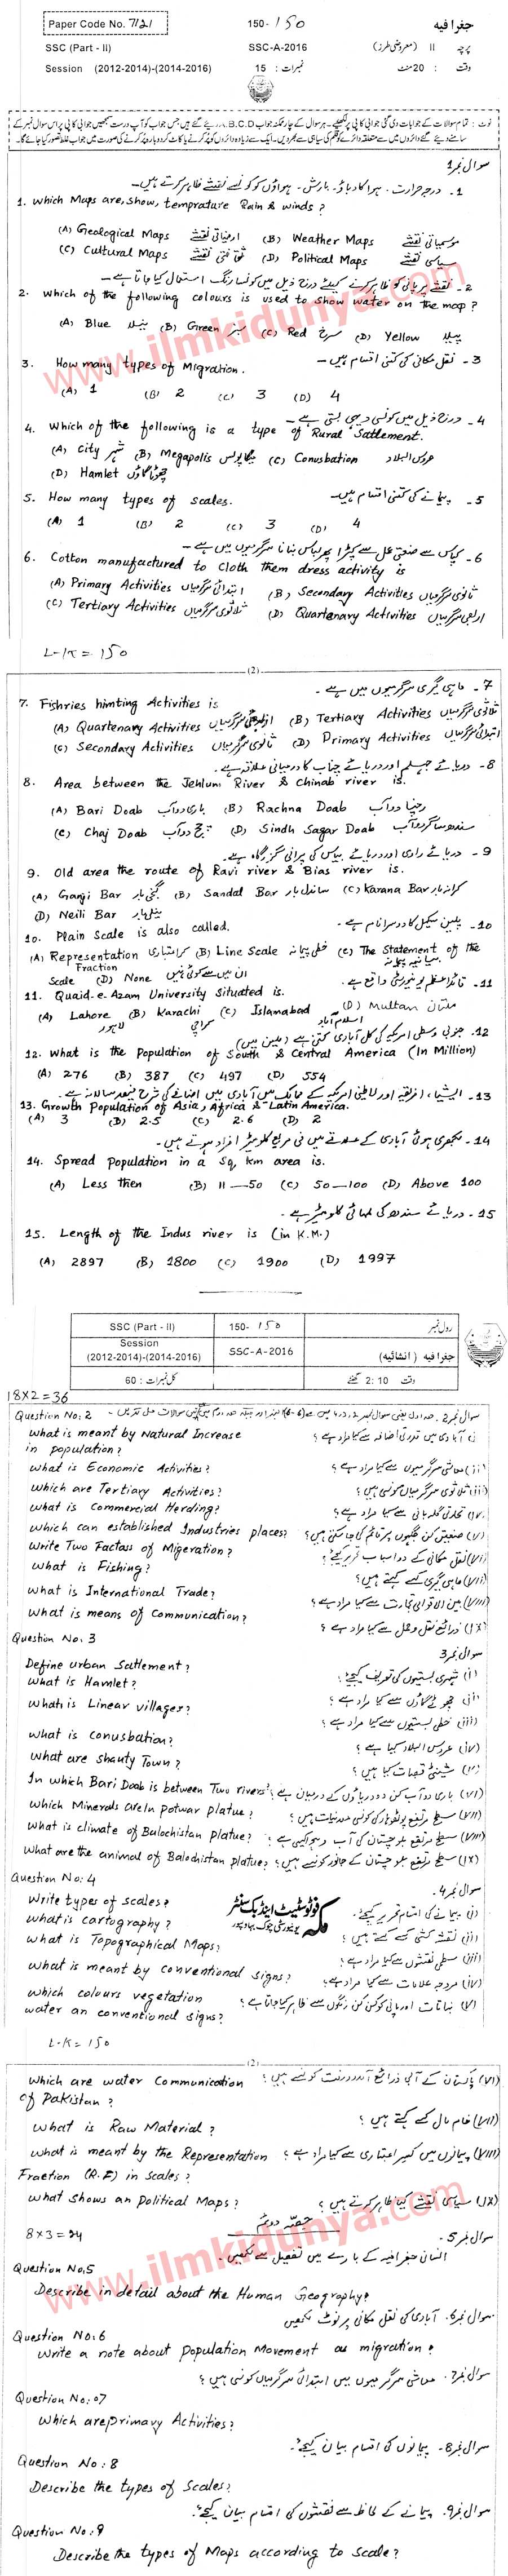 Paper Code No. 7121
150-150
جغرافیہ
SSC (Part - II)
SSC-A-2016
پرچہ II (معروضی طرز)
Session (2012-2014)-(2014-2016)
نمبرات : 15
وقت : 20 منٹ
سوال نمبر 1
1. Which Maps are, show, temprature Rain & winds?
(A) Geological Maps (B) Weather Maps موسمیاتی نقشے
(C) Cultural Maps ثقافتی نقشے (D) Political Maps سیاسی نقشے
2 - نقشے پر پانی کو ظاہر کرنے کیلئے درج ذیل میں کونسا رنگ استعمال کیا جاتا ہے -
2. Which of the following colours is used to show water on the map?
(A) Blue نیلا (B) Green سبز (C) Red سرخ (D) Yellow پیلا
3 - نقل مکانی کی کتنی اقسام ہیں -
3. How many types of Migration.
(A) 1 (B) 2 (C) 3 (D) 4
4 - درج ذیل میں کونسی دیہی بستی ہے -
4. Which of the following is a type of Rural Satlement.
(A) City شہر (B) Megapolis میگاپولس (C) Conusbation عروس البلاد
(D) Hamlet چھوٹا گاؤں
5 - پیمانے کی کتنی اقسام ہیں -
5. How many types of scales.
(A) 1 (B) 2 (C) 3 (D) 4
6 - کپاس سے صنعتی عمل سے کپڑا پھر لباس بنانا سرگرمیوں میں ہے -
6. Cotton manufactured to cloth them dress activity is
(A) Primary Activities ابتدائی سرگرمیاں (B) Secondary Activities ثانوی سرگرمیاں
(C) Tertiary Activities ثلاثوی سرگرمیاں (D) Quartenary Activities
L-K= 150
(2)
7 - ماہی گیری سرگرمیوں میں ہے -
7. Fishries himting Activities is
(A) Quartenary Activities (B) Tertiary Activities ثلاثوی سرگرمیاں
(C) Secondary Activities ثانوی سرگرمیاں (D) Primary Activities ابتدائی سرگرمیاں
8 - دریائے جہلم اور دریائے چناب کا درمیانی علاقہ ہے -
8. Area between the Jehlum River & Chinab river is.
(A) Bari Doab باری دوآب (B) Rachna Doab رچنا دوآب
(C) Chaj Doab چج دوآب (D) Sindh Sagar Doab سندھ ساگر دوآب
9 - دریائے راوی اور دریائے بیاس کی پرانی گزرگاہ ہے -
9. Old area the route of Ravi river & Bias river is.
(A) Ganji Bar گنجی بار (B) Sandal Bar ساندل بار (C) Karana Bar کرانہ بار
(D) Neili Bar نیلی بار
10 - پلین سکیل کا دوسرا نام ہے -
10. Plain Scale is also called.
(A) Representation Fraction Scale (B) Line Scale خطی پیمانہ (C) The Statement of the
(D) None ان میں سے کوئی نہیں
11 - قائداعظم یونیورسٹی واقع ہے -
11. Quaid-e-Azam University Situated is.
(A) Lahore لاہور (B) Karachi کراچی (C) Islamabad اسلام آباد (D) Multan ملتان
12 - جنوبی وسطی امریکہ کی کل آبادی کتنی ہے (ملین میں)
12. What is the Population of South & Central America (In Million)
(A) 276 (B) 387 (C) 497 (D) 554
13 - ایشیا، افریقہ اور لاطینی امریکہ کے ممالک میں آبادی میں اضافے کی شرح فیصد سالانہ ہے -
13. Growth Population of Asia, Africa & Latin America.
(A) 3 (B) 2.5 (C) 2.6 (D) 2
14 - بکھری ہوئی آبادی کے علاقے میں فی مربع کلومیٹر افراد ہوتے ہیں -
14. Spread population in a Sq, km area is.
(A) Less then (B) 11—50 (C) 50—100 (D) Above 100
15 - دریائے سندھ کی لمبائی کلومیٹر ہے -
15. Length of the Indus river is (in K.M.)
(A) 2897 (B) 1800 (C) 1900 (D) 1997
SSC (Part - II)
150- 150
رول نمبر
Session (2012-2014)-(2014-2016)
SSC-A-2016
جغرافیہ (انشائیہ)
کل نمبرات : 60
وقت 2:10 گھنٹے
18×2=36
Question No:2
What is meant by Natural Increase in population?
(i) آبادی میں قدرتی اضافہ سے کیا مراد ہے ؟
What is Economic Activities?
(ii) معاشی سرگرمیوں سے کیا مراد ہے ؟
Which are Tertiary Activities?
(iii) ثلاثوی سرگرمیاں کونسی ہیں ؟
What is Commercial Herding?
(iv) تجارتی گلہ بانی سے کیا مراد ہے ؟
Which can established Industries places?
(v) صنعتیں کن جگہوں پر قائم کی جا سکتی ہیں ؟
Write Two Factass of Migeration?
(vi) نقل مکانی کے دو اسباب تحریر کیجئے ؟
What is Fishing?
(vii) ماہی گیری کسے کہتے ہیں ؟
What is International Trade?
(viii) بین الاقوامی تجارت سے کیا مراد ہے ؟
What is means of Communication?
(ix) ذرائع نقل و حمل سے کیا مراد ہے ؟
Question No: 3
سوال نمبر 3
Define urban Settlement?
(i) شہری بستیوں کی تعریف کیجئے ؟
What is Hamlet?
(ii) چھوٹے گاؤں سے کیا مراد ہے ؟
What is Linear villages?
(iii) خطی بستیوں سے کیا مراد ہے ؟
What is conusbation?
(iv) عروس البلاد کیا ہے ؟
What are shanty Town?
(v) شینٹی قصبات کیا ہیں ؟
In which Bari Doab is between Two rivers?
(vi) باری دوآب کن دو دریاؤں کے درمیان ہے ؟
Which Minerals are In potwar platue?
(vii) سطح مرتفع پوٹھوہار کی کونسی معدنیات ہیں ؟
What is climate of Balochistan platue?
(viii) سطح مرتفع بلوچستان کی آب و ہوا کیسی ہے ؟
What are the animal of Balochistan platue?
(ix) سطح مرتفع بلوچستان کے جانور کونسے ہیں ؟
Question No: 4
سوال نمبر 4
Write types of scales?
(i) پیمانے کی اقسام تحریر کیجئے ؟
What is cartography?
(ii) نقشہ کشی کسے کہتے ہیں ؟
What is Topographical Maps?
(iii) سطحی نقشوں سے کیا مراد ہے ؟
What is meant by conventional signs?
(iv) مروجہ علامات سے کیا مراد ہے ؟
Which colours vegetation water an conventional signs?
(v) نباتات اور پانی کو کن کن رنگوں سے ظاہر کیا جاتا ہے ؟
مکہ فوٹوسٹیٹ اینڈ بک سنٹر
L-K= 150
(2)
Which are water Communication of Pakistan?
(vi) پاکستان کے آبی ذرائع آمدورفت کونسے ہیں ؟
What is Raw Material?
(vii) خام مال کسے کہتے ہیں ؟
What is meant by the Representation Fraction (R.F) in Scales?
(viii) پیمانوں میں کسر اعتباری سے کیا مراد ہے ؟
What shows an Political Maps?
(ix) سیاسی نقشے کیا ظاہر کرتے ہیں ؟
حصہ دوئم
8×3=24
سوال نمبر 5 -
انسانی جغرافیہ کے بارے میں تفصیل سے لکھیں -
Question No:5
Describe in detail about the Human Geography?
سوال نمبر 6 - آبادی کی نقل مکانی پر نوٹ لکھیں
Question No:6
Write a note about Population Movement as migration?
سوال نمبر 7 - معاشی سرگرمیوں میں ابتدائی سرگرمیاں کونسی ہیں ؟
Question No:07
Which are primary Activities?
سوال نمبر 8 - پیمانوں کی اقسام بیان کیجئے -
Question No:8
Describe the types of Scales?
سوال نمبر 9 - پیمانے کے لحاظ سے نقشوں کی اقسام بیان کیجئے -
Question No:9
Describe the types of Maps according to Scale?
www.ilmkidunya.com
www.ilmkidunya.com